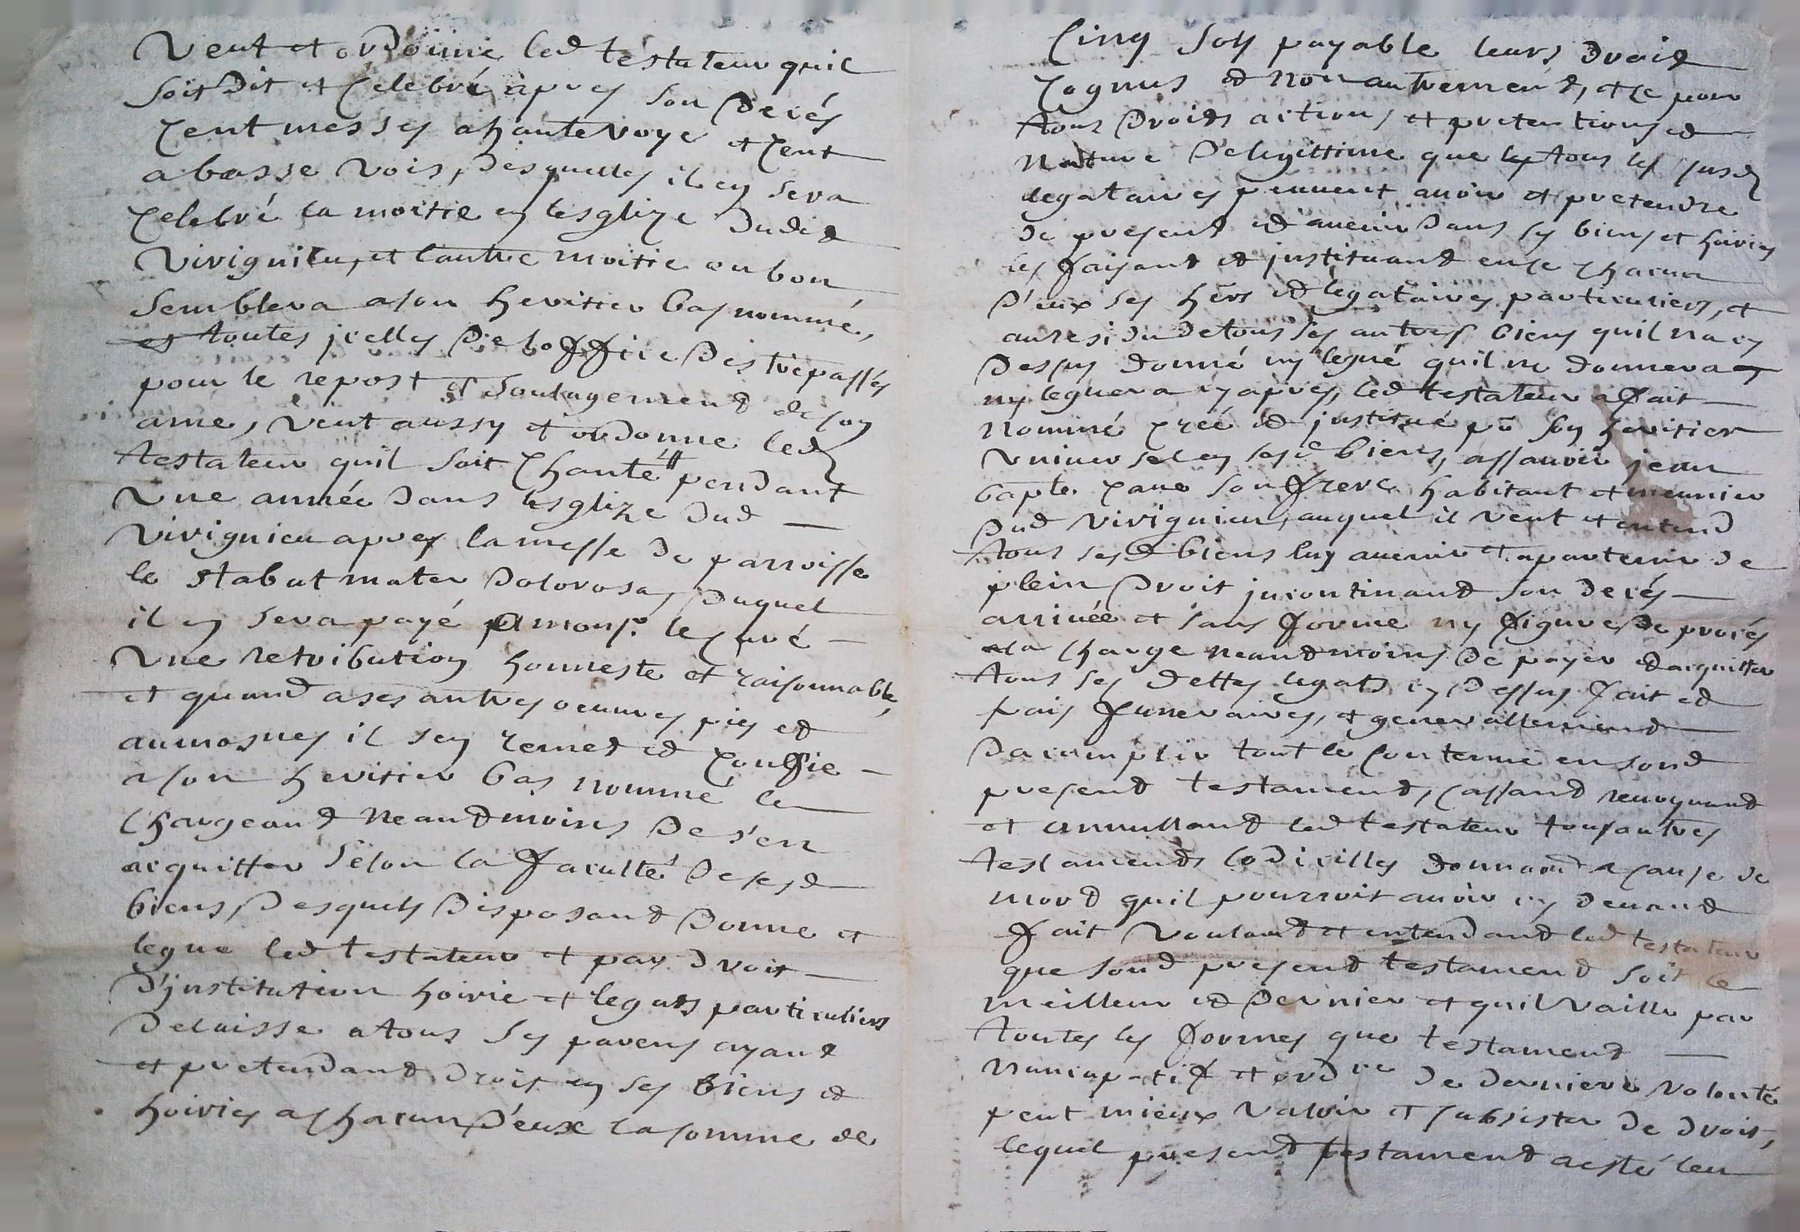 Veut et ordonne led testateur quil
soit dit et celebré apres son decés
cent messes a haute voye et cent
a basse vois, desquelles il en sera
celebré la moitie en lesglize dudit
Virignieu, et lautre moitie ou bon
semblera a son heritier bas nommé,
et toutes jcelles de loffice des trepassés
pour le repost et soulagement de son
ame, veut aussy et ordonne led
testateur quil soit chanté pendant
une année dans lesglize dud
Virignieu apres la messe de parroisse
le stabat mater dolorosa, duquel
il en sera payé a monsr. le curé
une retribution honneste et raisonnable,
et quand a ses autres oeuvres pies et
aumosnes il sen remet et confie
a son heritier bas nommé le
chargeant neandmoins de s'en
acquitter selon la faculté de sesd
biens, desquels disposant donne et
legue led testateur et par droit
d'jnstitution hoirie et legats particuliers
delaisse a tous ses parens ayant
et pretendant droit en ses biens et
hoiries a chacun d'eux la somme de
Cinq sols payable leurs droit
cognus et non autrement, et ce pour
tous droits actions et pretentions et
nature de legittime que les tous les susd
legataires peuvent avoir et pretendre
de present et avenir dans ses biens et hoiries
les faisant et jnstituant en ce chacun
d'eux ses hers et legataires particuliers, et
au residu de tous ses autres biens quil na cy
dessus donné ny legué quil ne donnera
ny leguera cy apres, led testateur a fait
nommé creé et jnstitué po son heritier
universel en sesd biens, assavoir jean
bapte. cave son frere habitant et meunier
dud Virignieu, auquel il veut et entend
tous sesd biens luy avenir et apartenir de
plein droit jncontinand son decés
arrivée et sans forme ny figure de procés
a la charge neandmoins de payer et acquitter
tous ses dettes legats cy dessus fait et
frais funeraires, et generallement
daccomplir tout le contenue en sond
present testament, cassand revoquand
et annulland led testateur tous autres
testaments codicilles donnaon a cause de
mort quil pourroit avoir cy devand
fait voulant et entendand led testateur
que sond present testament soit le
meilleur et dernier et quil vaille par
toutes les formes que testament
nuncupatif et ordre de derniere volonté
peut mieux valoir et subsister de droit,
lequel present testament a esté leu